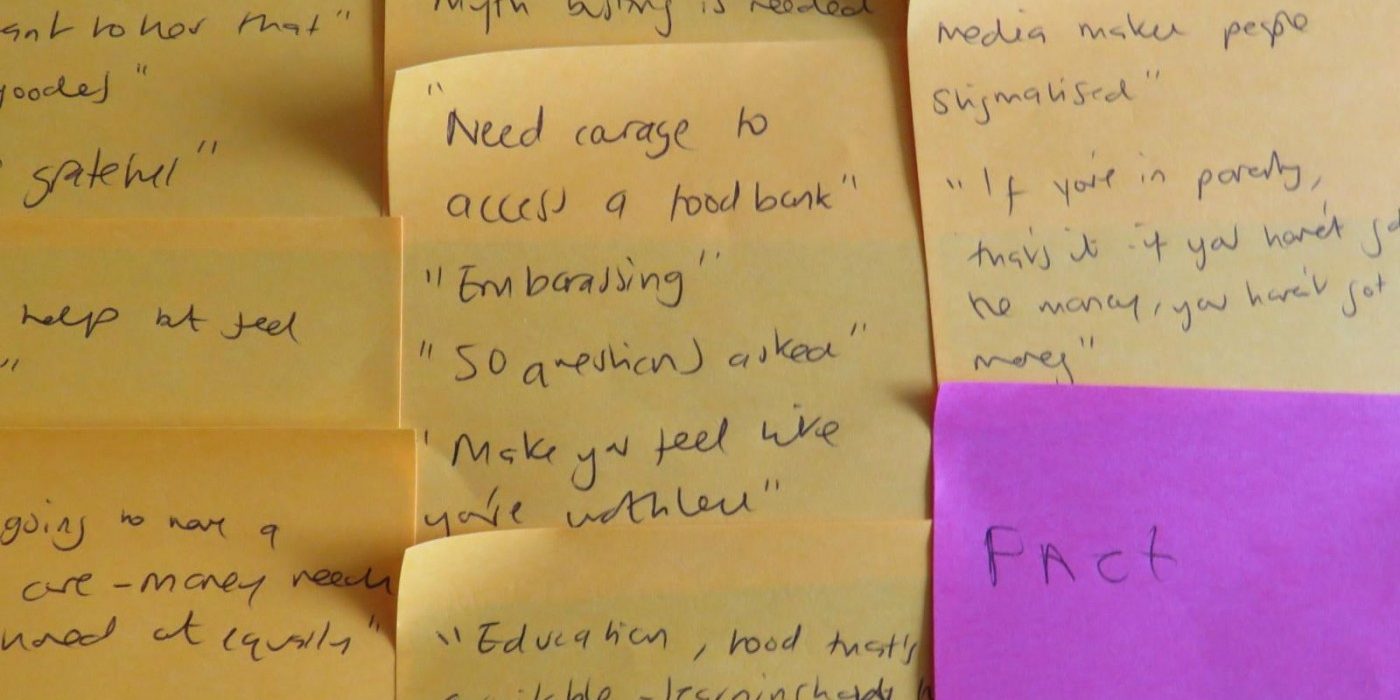 ant to her that"
grateful"
help but feel
"
going to have a
care - money needs
at equally"
Myth busting is needed
"Need carage to
access a food bank"
"Embarassing"
"50 questions asked"
"Make you feel like
you're worthless"
"Education, food that's
media makes people
stigmatised"
"If you're in poverty,
that's it - if you haven't go
no money, you haven't got
money"
PACT